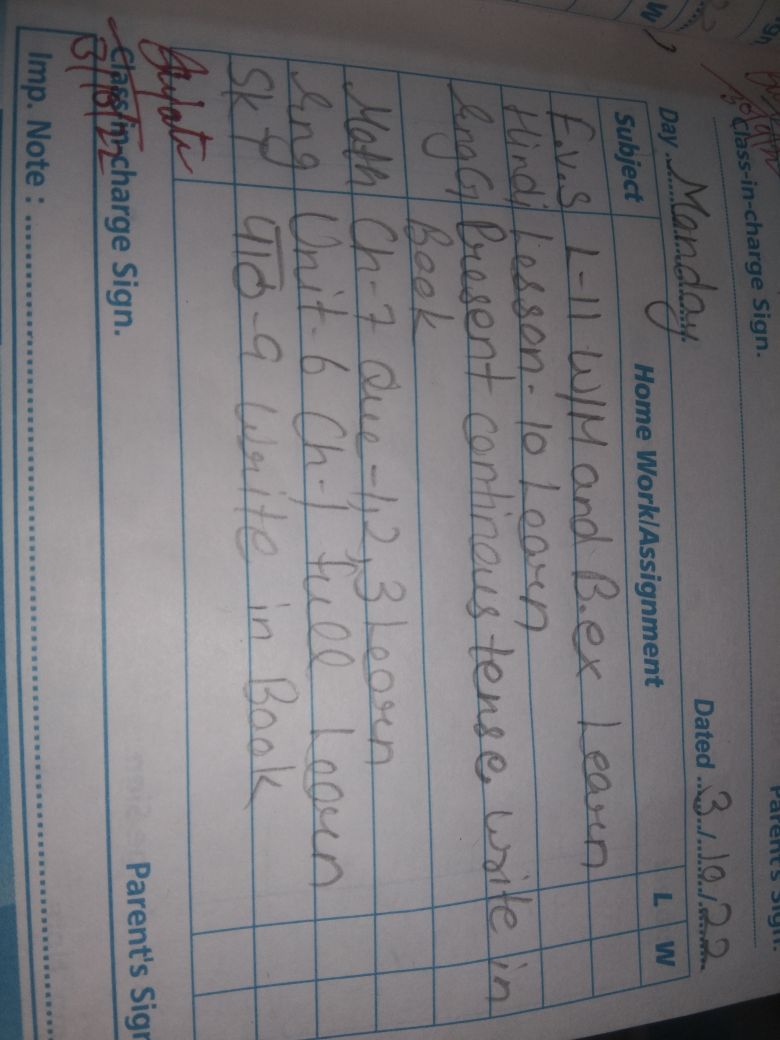 Class-in-charge Sign.
Parent's Sign.
Day Monday Dated 3/10/22
Subject Home Work/Assignment L W
E.V.S L-11 W/M and B.ex Learn
Hindi Lesson-10 Learn
EngG Present continous tense write in
Book
Math Ch-7 Que-1,2,3 Learn
Eng Unit-6 Ch-1 full Learn
Skt पाठ-9 Write in Book
3/10/22
Class-in-charge Sign. Parent's Sign
Imp. Note :